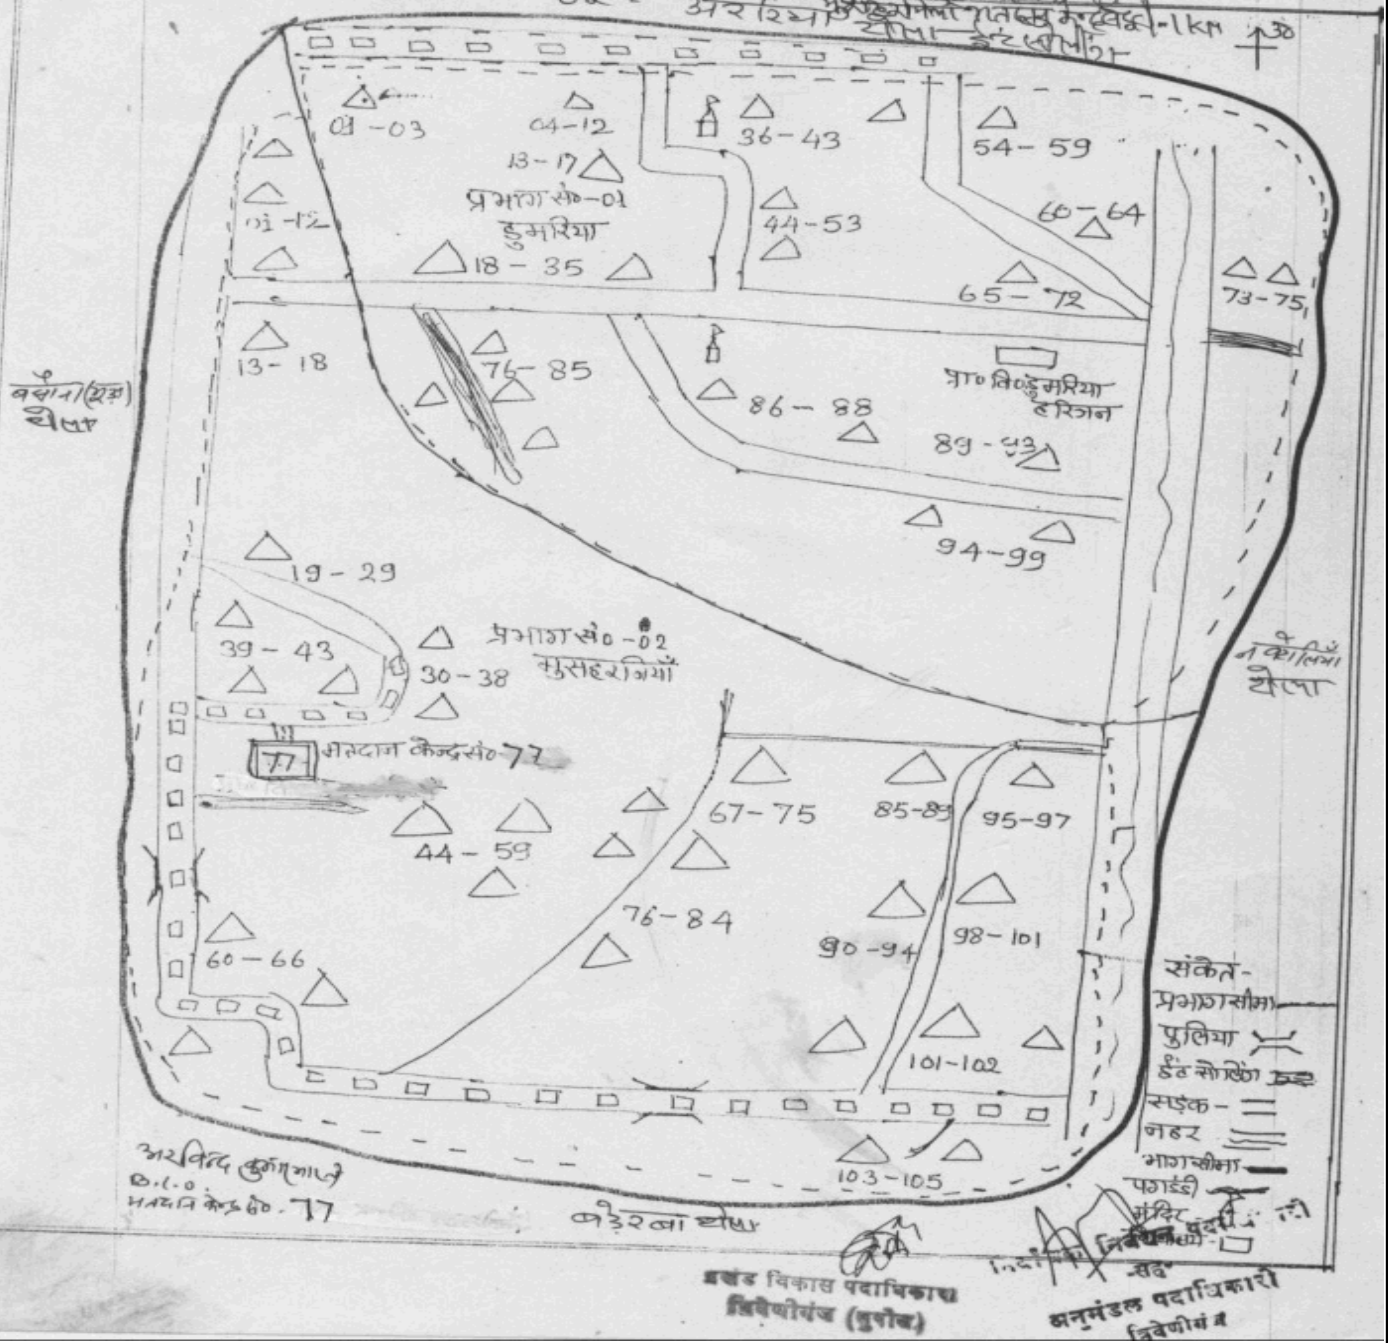 अररिया
1 km
उ०
01-03
04-12
13-17
36-43
54-59
प्रभाग सं०-01
डुमरिया
18-35
44-53
60-64
65-72
73-75
01-12
13-18
76-85
86-88
प्रा० वि० डुमरिया
हरिजन
89-93
94-99
थेला
19-29
39-43
30-38
प्रभाग सं०-02
मुसहरनियाँ
थेला
77
मतदान केन्द्र सं०-77
44-59
67-75
85-89
95-97
76-84
90-94
98-101
60-66
101-102
103-105
संकेत-
प्रभाग सीमा
पुलिया
ईंट सोलिंग
सड़क-
नहर
भाग सीमा
पगडंडी
मंदिर
अरविन्द कुमार
B.L.O.
मतदान केन्द्र सं०-77
बड़ेरबा थेला
प्रखंड विकास पदाधिकारी
त्रिवेणीगंज (सुपौल)
-सह-
अनुमंडल पदाधिकारी
त्रिवेणीगंज